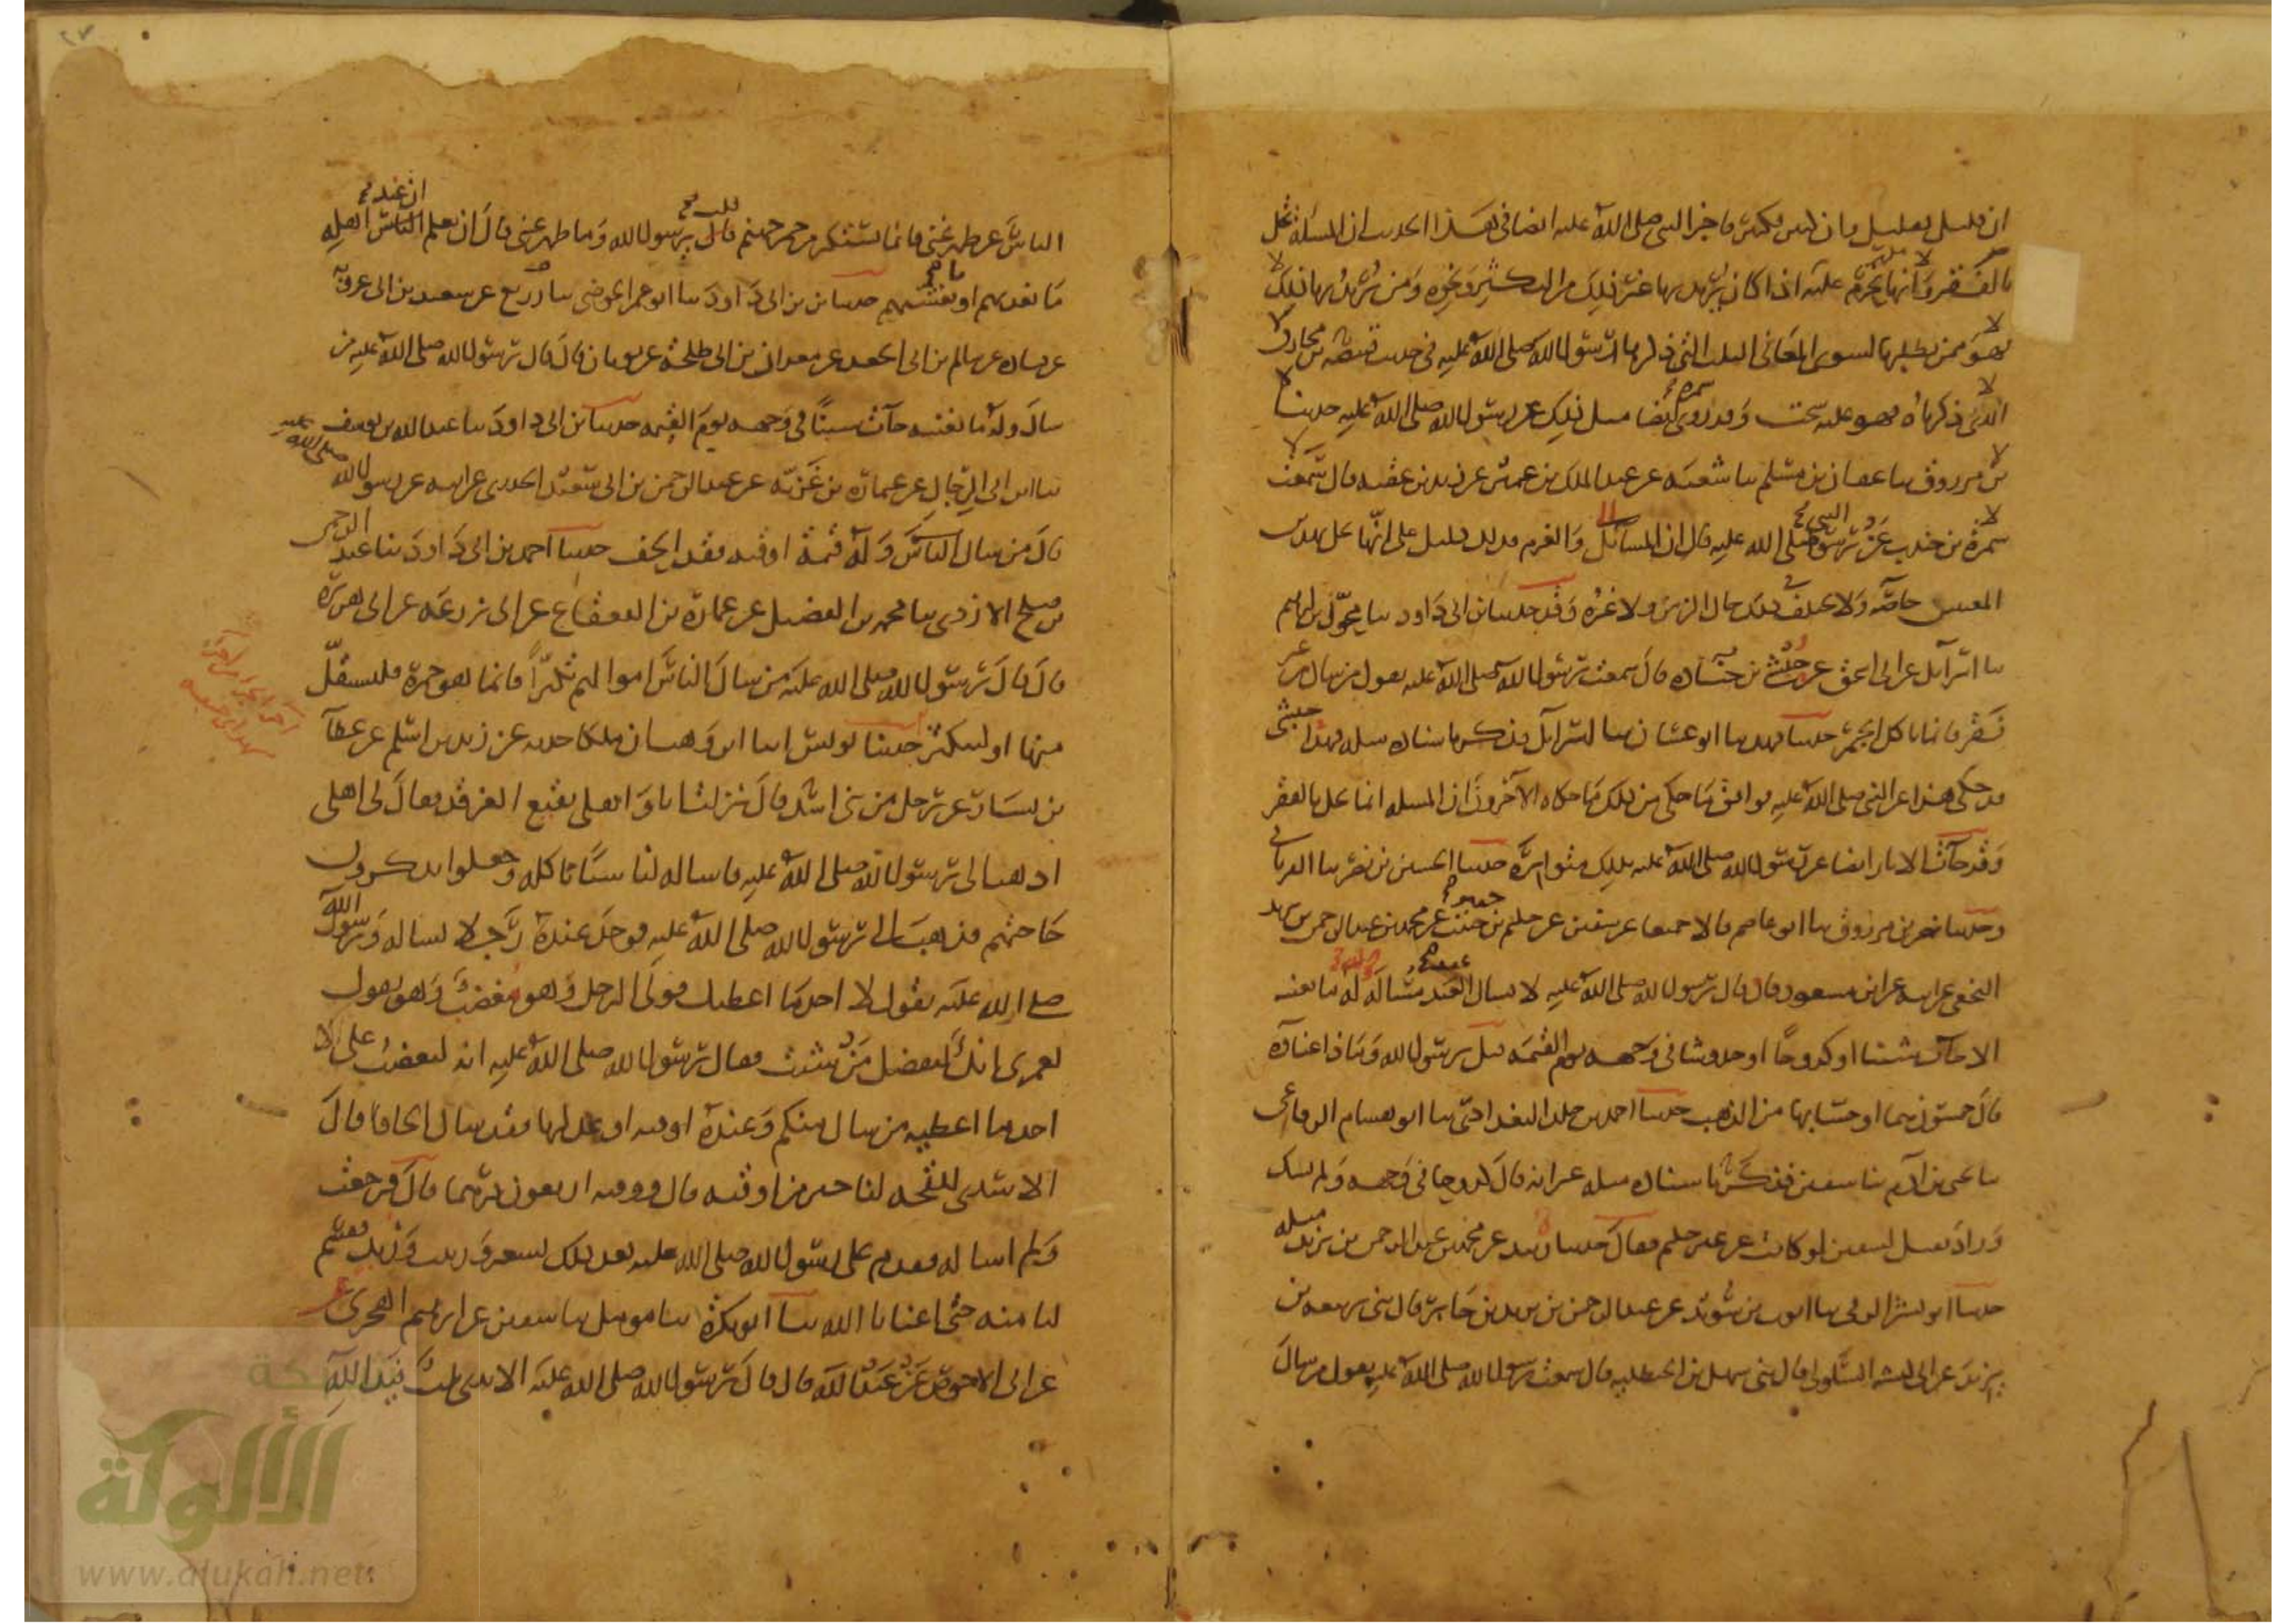 ان قليل بقليل وان كثير بكثير فاخبر النبي صلى الله عليه ايضا في هذا الحديث ان المسئلة تحل
بالفقر وانها تحرم عليه اذا كان يريد بها غير ذلك من التكثير وغيره ومن يريد بها ذلك
فهو ممن يطلبها لسوى المعاني الثلث التي ذكرها رسول الله صلى الله عليه في حديث قبيصة بن مخارق
الذي ذكرناه فهو عليه سحت وقد روى سمرة ايضا مثل ذلك عن رسول الله صلى الله عليه حدثنا
بن مرزوق ثنا عفان بن مسلم ثنا شعبة عن عبد الملك بن عمير عن زيد بن عقبة قال سمعت
سمرة بن جندب عن رسول صلى الله عليه قال ان المسائل
المعنيين خاصة ولا يخلف في ذلك حال الزمن ولا غيره وقد حدثنا بن ابي داود ثنا مخول بن ابراهيم
ثنا اسرائيل عن ابي اسحق عن حبشي بن جنادة قال سمعت رسول الله صلى الله عليه يقول من سال من غير
فقر فانما ياكل الجمر حدثنا فهد ثنا ابو غسان ثنا اسرائيل فذكر باسناده مثله فهذا حبشي
قد حكى هذا عن النبي صلى الله عليه فوافق ما حكى من ذلك ما حكاه الآخرون ان المسئلة انما تحل بالفقر
وقد جآت الاثار ايضا عن رسول الله صلى الله عليه بذلك متواترة حدثنا الحسين بن نصر ثنا الفريابي
وحدثنا بن مرزوق ثنا ابو عاصم قالا جميعا عن سفين عن حكيم بن جبير عن محمد بن عبد الرحمن بن يزيد
النخعي عن ابيه عن ابن مسعود قال قال رسول الله صلى الله عليه لا يسال العبد مسالة له ما يغنيه
الا جآت شينا او كدوحا او خدوشا في وجهه يوم القيمة قيل يرسول الله وماذا غناؤه
قال خمسون درهما او حسابها من الذهب حدثنا احمد بن خلد البغدادي ثنا ابو هشام الرفاعي
ثنا يحيى بن آدم ثنا سفين فذكر باسناده مثله غير انه قال كدوحا في وجهه ولم يشك
وزاد فقيل لسفين لو كانت عن غير حكيم فقال حدثناه زبيد عن محمد بن عبد الرحمن بن يزيد مثله
حدثنا ابو بشر الرقي ثنا ايوب بن سويد عن عبد الرحمن بن يزيد بن جابر قال ثني ربيعة بن
يزيد عن ابي كبشة السلولي قال ثني سهل بن الحنظلية قال سمعت رسول الله صلى الله عليه يقول من سال
الناس عن ظهر غنى فانما يستكثر من جمر جهنم قال يرسول الله وما ظهر غنى قال ان يعلم الناس اهله
ما يغديهم او يعشيهم حدثنا بن ابي داود ثنا ابو عمر الحوضي ثنا زريع عن سعيد بن ابي عروبة
عن قتادة عن سالم بن ابي الجعد عن معدان بن ابي طلحة عن ثوبان قال قال رسول الله صلى الله عليه من
سال وله ما يغنيه جآت شينا في وجهه يوم القيمة حدثنا بن ابي داود ثنا عبد الله بن يوسف
ثنا ابن ابي الرجال عن عمارة بن غزية عن عبد الرحمن بن ابي سعيد الخدري عن ابيه عن رسول الله صلى الله عليه
قال من سال الناس وله قيمة اوقية فقد الحف حدثنا احمد بن ابي داود ثنا عبد الرحمن
بن صلح الازدي ثنا محمد بن الفضيل عن عمارة بن القعقاع عن ابي زرعة عن ابي هريرة
قال قال رسول الله صلى الله عليه من سال الناس اموالهم تكثرا فانما هو جمرة فليستقل
منها او ليستكثر حدثنا يونس انبا ابن وهب ان ملكا حدثه عن زيد بن اسلم عن عطآ
بن يسار عن رجل من بني اسد قال نزلت انا واهلي بقيع الغرقد فقال لي اهلي
اذهب الى رسول الله صلى الله عليه فاساله لنا شيئا ناكله وجعلوا يذكرون
حاجتهم فذهبت الى رسول الله صلى الله عليه فوجدت عنده رجلا يساله ورسول الله
صلى الله عليه يقول لا اجد ما اعطيك فولى الرجل وهو مغضب وهو يقول
لعمري انك لتفضل من شئت فقال رسول الله صلى الله عليه انه ليغضب علي الا
اجد ما اعطيه من سال منكم وعنده اوقية او عدلها فقد سال الحافا قال
الاسدي للقحة لنا خير من اوقية قال والاوقية اربعون درهما قال فرجعت
ولم اساله فقدم على رسول الله صلى الله عليه بعد ذلك بشعير وزبيب فقسم
لنا منه حتى اغنانا الله ثنا ابو بكرة ثنا مومل ثنا سفين عن ابرهيم الهجري
عن ابي الاحوص عن عبد الله قال قال رسول الله صلى الله عليه الايدي ثلث فيد الله
الألوكة
www.alukah.net